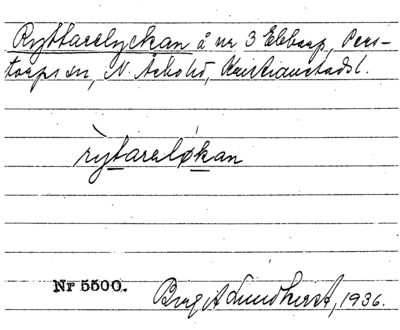 Ryttarelyckan å nr 3 Ebbarp, Pers-
torps sn, N. Åsbohd, Kristianstadsl.
rytareløkan
Nr 5500.
Birgit Lundkvist, 1936.